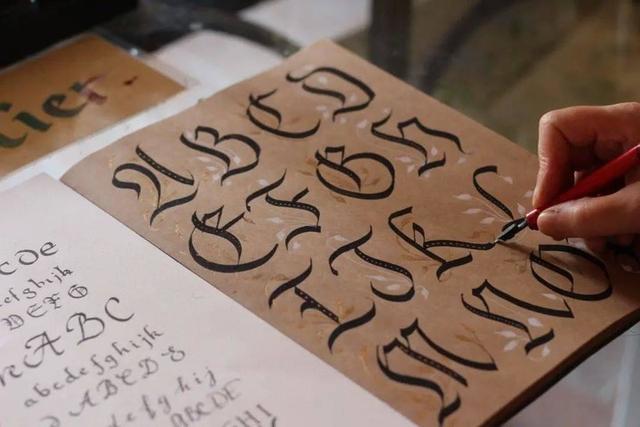 lier
ABCD
EFGH
IJKL
MNO
cde
efghijk
DEFG
ABC
abcdefghijk
ABCD
efghij
ABCDE
GHI